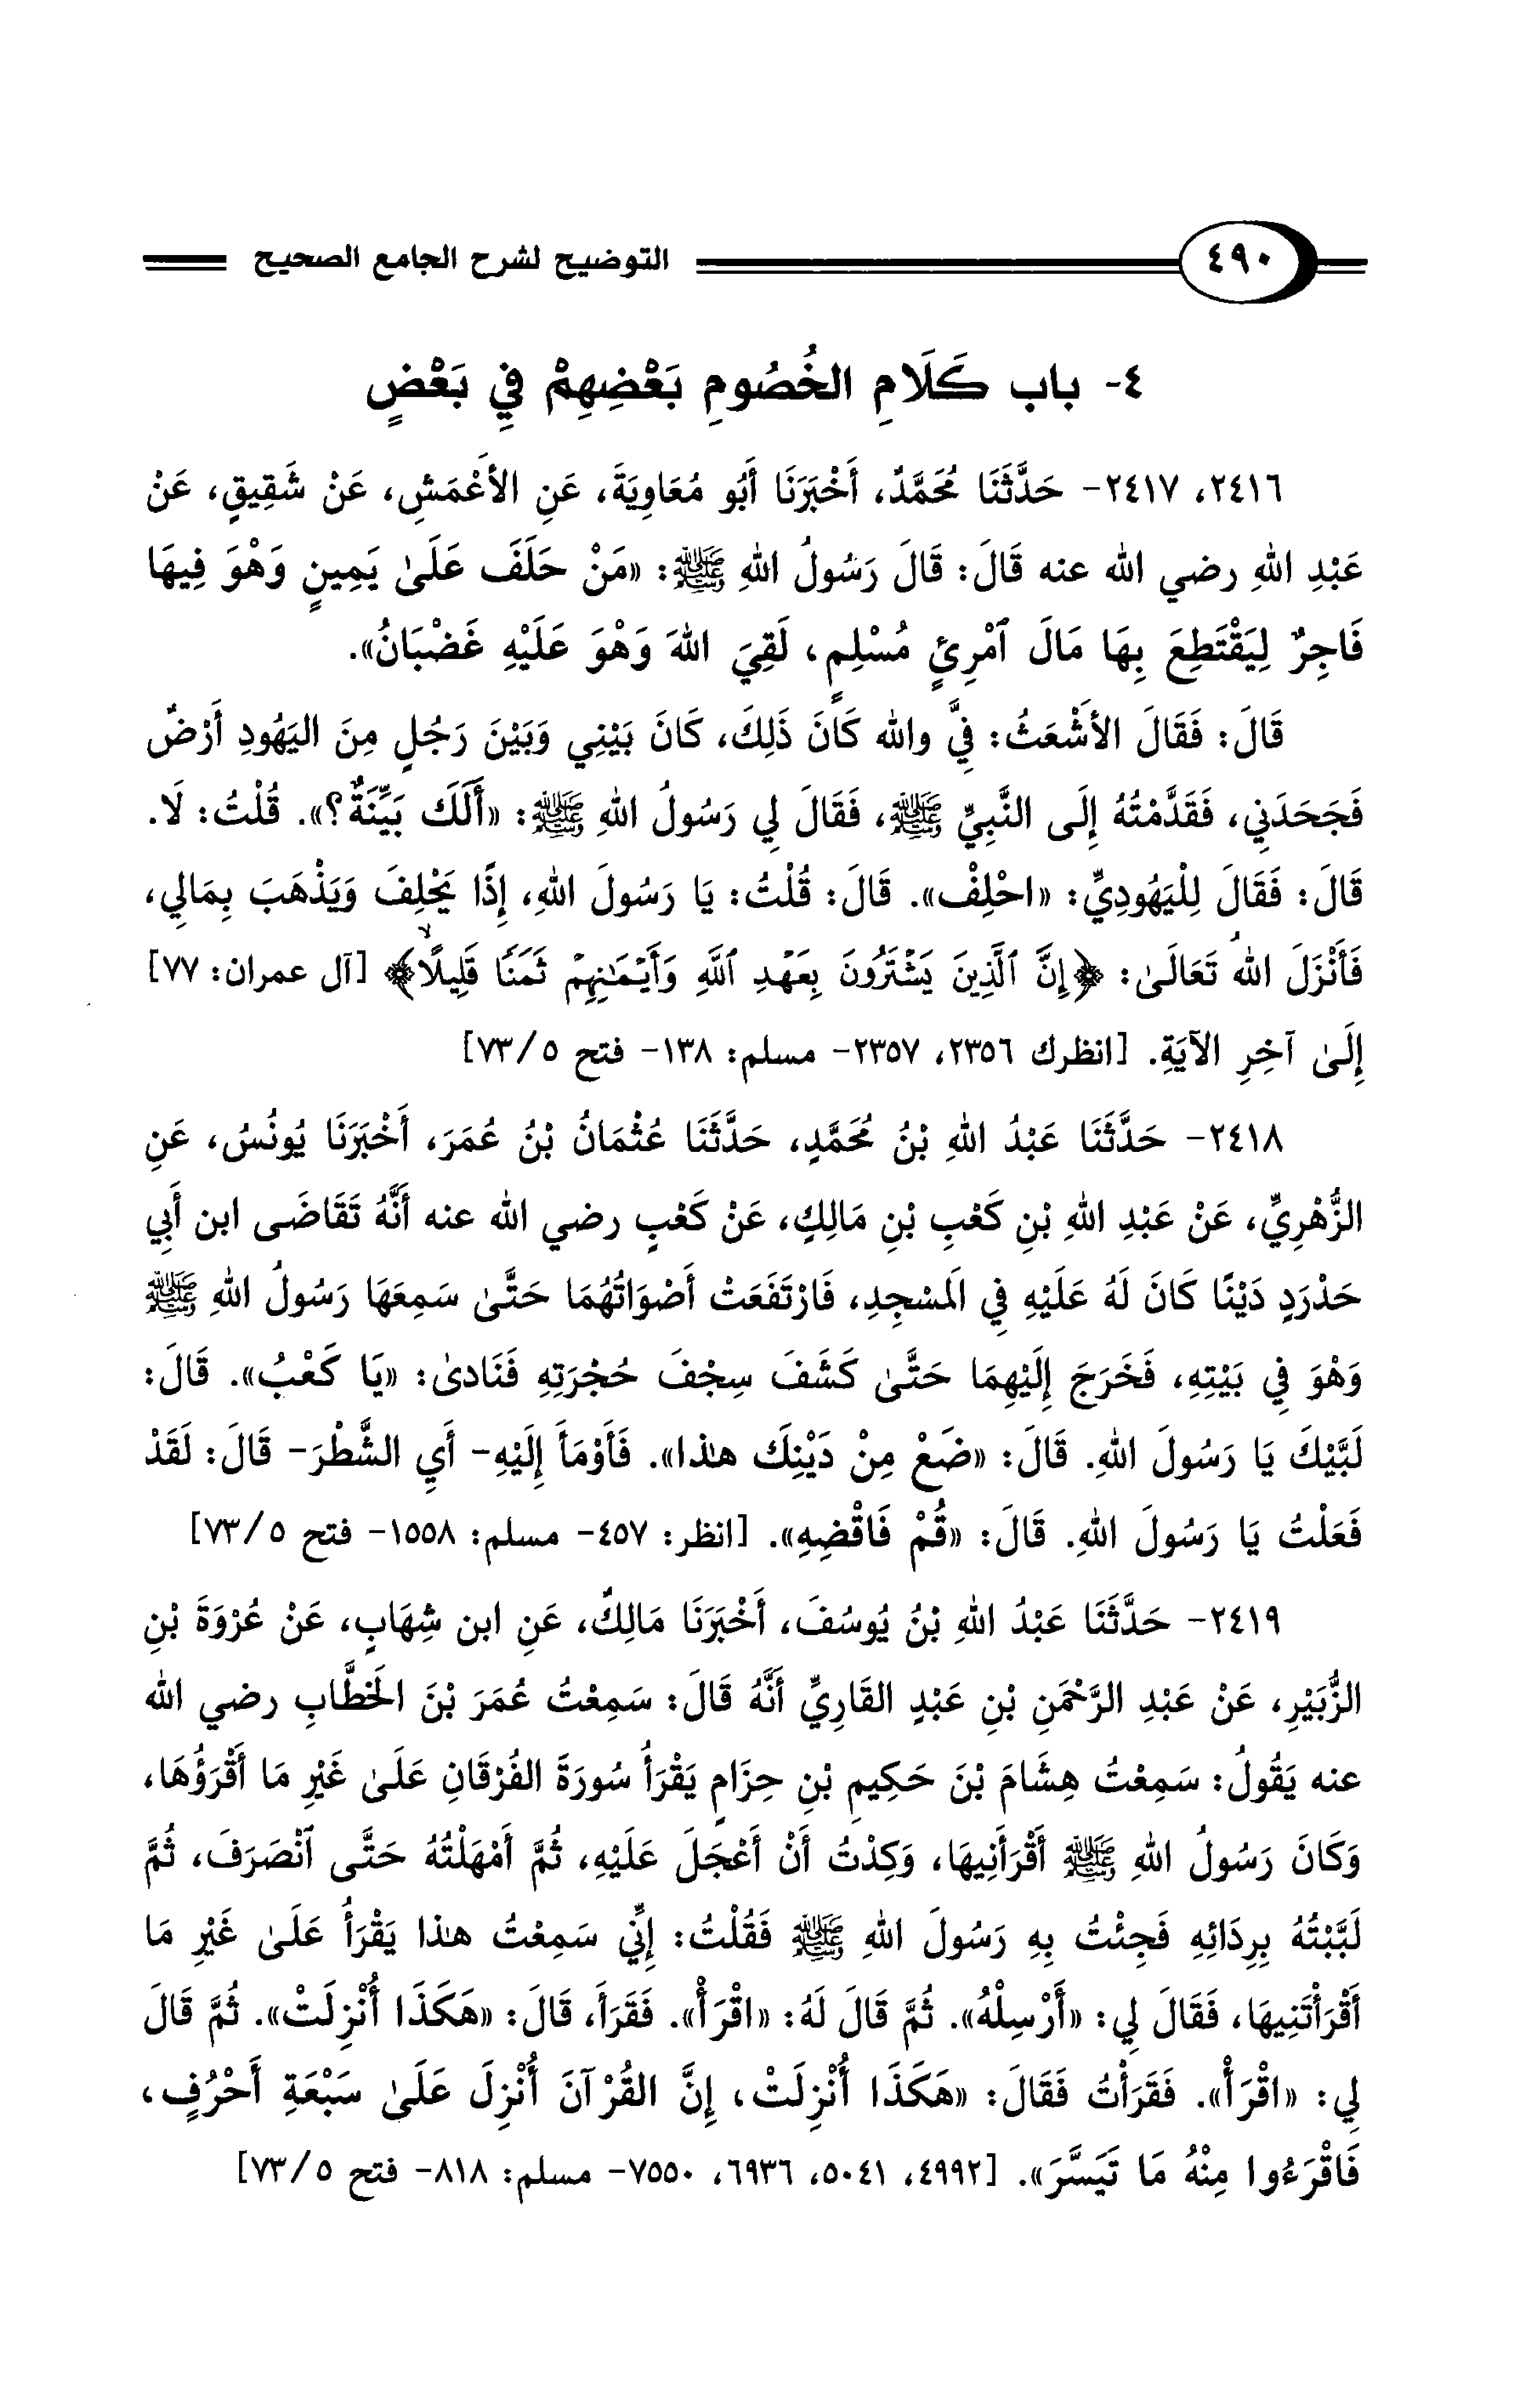 ٤٩٠ التوضيح لشرح الجامع الصحيح
٤- باب كَلَامِ الخُصُومِ بَعْضِهِمْ فِي بَعْضٍ
٢٤١٦، ٢٤١٧- حَدَّثَنَا مُحَمَّدٌ، أَخْبَرَنَا أَبُو مُعَاوِيَةَ، عَنِ الأَعْمَشِ، عَنْ شَقِيقٍ، عَنْ
عَبْدِ اللهِ رضي الله عنه قَالَ: قَالَ رَسُولُ اللهِ ﷺ: «مَنْ حَلَفَ عَلَىٰ يَمِينٍ وَهْوَ فِيهَا
فَاجِرٌ لِيَقْتَطِعَ بِهَا مَالَ ٱمْرِئٍ مُسْلِمٍ، لَقِيَ اللهَ وَهْوَ عَلَيْهِ غَضْبَانُ».
قَالَ: فَقَالَ الأَشْعَثُ: فِيَّ والله كَانَ ذَلِكَ، كَانَ بَيْنِي وَبَيْنَ رَجُلٍ مِنَ اليَهُودِ أَرْضٌ
فَجَحَدَنِي، فَقَدَّمْتُهُ إِلَى النَّبِيِّ ﷺ، فَقَالَ لِي رَسُولُ اللهِ ﷺ: «أَلَكَ بَيِّنَةٌ؟». قُلْتُ: لَا.
قَالَ: فَقَالَ لِلْيَهُودِيِّ: «احْلِفْ». قَالَ: قُلْتُ: يَا رَسُولَ اللهِ، إِذًا يَحْلِفَ وَيَذْهَبَ بِمَالِي،
فَأَنْزَلَ اللهُ تَعَالَىٰ: ﴿إِنَّ ٱلَّذِينَ يَشْتَرُونَ بِعَهْدِ ٱللَّهِ وَأَيْمَٰنِهِمْ ثَمَنًا قَلِيلًا﴾ [آل عمران: ٧٧]
إِلَىٰ آخِرِ الآيَةِ. [انظرك ٢٣٥٦، ٢٣٥٧- مسلم: ١٣٨- فتح ٥/ ٧٣]
٢٤١٨- حَدَّثَنَا عَبْدُ اللهِ بْنُ مُحَمَّدٍ، حَدَّثَنَا عُثْمَانُ بْنُ عُمَرَ، أَخْبَرَنَا يُونُسُ، عَنِ
الزُّهْرِيِّ، عَنْ عَبْدِ اللهِ بْنِ كَعْبِ بْنِ مَالِكٍ، عَنْ كَعْبٍ رضي الله عنه أَنَّهُ تَقَاضَى ابن أَبِي
حَدْرَدٍ دَيْنًا كَانَ لَهُ عَلَيْهِ فِي المَسْجِدِ، فَارْتَفَعَتْ أَصْوَاتُهُمَا حَتَّىٰ سَمِعَهَا رَسُولُ اللهِ ﷺ
وَهْوَ فِي بَيْتِهِ، فَخَرَجَ إِلَيْهِمَا حَتَّىٰ كَشَفَ سِجْفَ حُجْرَتِهِ فَنَادىٰ: «يَا كَعْبُ». قَالَ:
لَبَّيْكَ يَا رَسُولَ اللهِ. قَالَ: «ضَعْ مِنْ دَيْنِكَ هٰذا». فَأَوْمَأَ إِلَيْهِ- أَيِ الشَّطْرَ- قَالَ: لَقَدْ
فَعَلْتُ يَا رَسُولَ اللهِ. قَالَ: «قُمْ فَاقْضِهِ». [انظر: ٤٥٧- مسلم: ١٥٥٨- فتح ٥/ ٧٣]
٢٤١٩- حَدَّثَنَا عَبْدُ اللهِ بْنُ يُوسُفَ، أَخْبَرَنَا مَالِكٌ، عَنِ ابن شِهَابٍ، عَنْ عُرْوَةَ بْنِ
الزُّبَيْرِ، عَنْ عَبْدِ الرَّحْمَنِ بْنِ عَبْدٍ القَارِيِّ أَنَّهُ قَالَ: سَمِعْتُ عُمَرَ بْنَ الخَطَّابِ رضي الله
عنه يَقُولُ: سَمِعْتُ هِشَامَ بْنَ حَكِيمِ بْنِ حِزَامٍ يَقْرَأُ سُورَةَ الفُرْقَانِ عَلَىٰ غَيْرِ مَا أَقْرَؤُهَا،
وَكَانَ رَسُولُ اللهِ ﷺ أَقْرَأَنِيهَا، وَكِدْتُ أَنْ أَعْجَلَ عَلَيْهِ، ثُمَّ أَمْهَلْتُهُ حَتَّى ٱنْصَرَفَ، ثُمَّ
لَبَّبْتُهُ بِرِدَائِهِ فَجِئْتُ بِهِ رَسُولَ اللهِ ﷺ فَقُلْتُ: إِنِّي سَمِعْتُ هٰذا يَقْرَأُ عَلَىٰ غَيْرِ مَا
أَقْرَأْتَنِيهَا، فَقَالَ لِي: «أَرْسِلْهُ». ثُمَّ قَالَ لَهُ: «اقْرَأْ». فَقَرَأَ، قَالَ: «هَكَذَا أُنْزِلَتْ». ثُمَّ قَالَ
لِي: «اقْرَأْ». فَقَرَأْتُ فَقَالَ: «هَكَذَا أُنْزِلَتْ، إِنَّ القُرْآنَ أُنْزِلَ عَلَىٰ سَبْعَةِ أَحْرُفٍ،
فَاقْرَءُوا مِنْهُ مَا تَيَسَّرَ». [٤٩٩٢، ٥٠٤١، ٦٩٣٦، ٧٥٥٠- مسلم: ٨١٨- فتح ٥/ ٧٣]